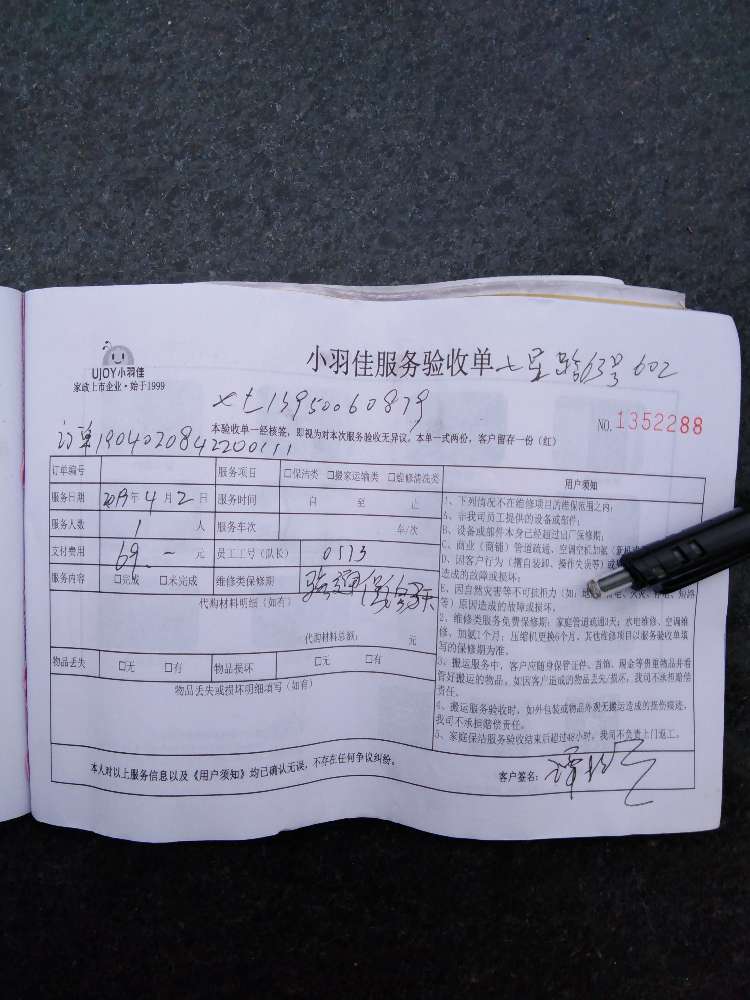 UJOY小羽佳
家政上市企业·始于1999
小羽佳服务验收单 七星路63号602
13950060879
NO.1352288
订单1904020842200111
本验收单一经核签，即视为对本次服务验收无异议，本单一式两份，客户留存一份（红）
订单编号 服务项目 □保洁类 □搬家运输类 □维修清洗类 用户须知
服务日期 2019年4月2日 服务时间 自 至 止
服务人数 1 人 服务车次 车/次
交付费用 69.- 元 员工工号(队长) 0513
服务内容 □完成 □未完成 维修类保修期
代购材料明细（如有）
代购材料总额： 元
物品丢失 □无 □有 物品损坏 □无 □有
物品丢失或损坏明细填写（如有）
1、下列情况不在维修项目的维保范围之内：
A、非我司员工提供的设备或部件；
B、设备或部件本身已经超过出厂保修期；
C、商业（商铺）管道疏通、空调空机加氨
D、因客户行为（擅自装卸、操作失误等）或
造成的故障或损坏；
E、因自然灾害等不可抗拒力（如：
等）原因造成的故障或损坏。
2、维修类服务免费保修期：家庭管道疏通3天；水电维修、空调维
修、加氨1个月；压缩机更换6个月。其他维修项目以服务验收单填
写的保修期为准。
3、搬运服务中，客户应随身保管证件、首饰、现金等贵重物品并看
管好搬运的物品。如因客户造成的物品丢失/损坏，我司不承担赔偿
责任。
4、搬运服务验收时，如外包装或物品外观无搬运造成的损伤痕迹，
我司不承担赔偿责任。
5、家庭保洁服务验收结束后超过48小时，我司不负责上门返工。
本人对以上服务信息以及《用户须知》均已确认无误，不存在任何争议纠纷。 客户签名：